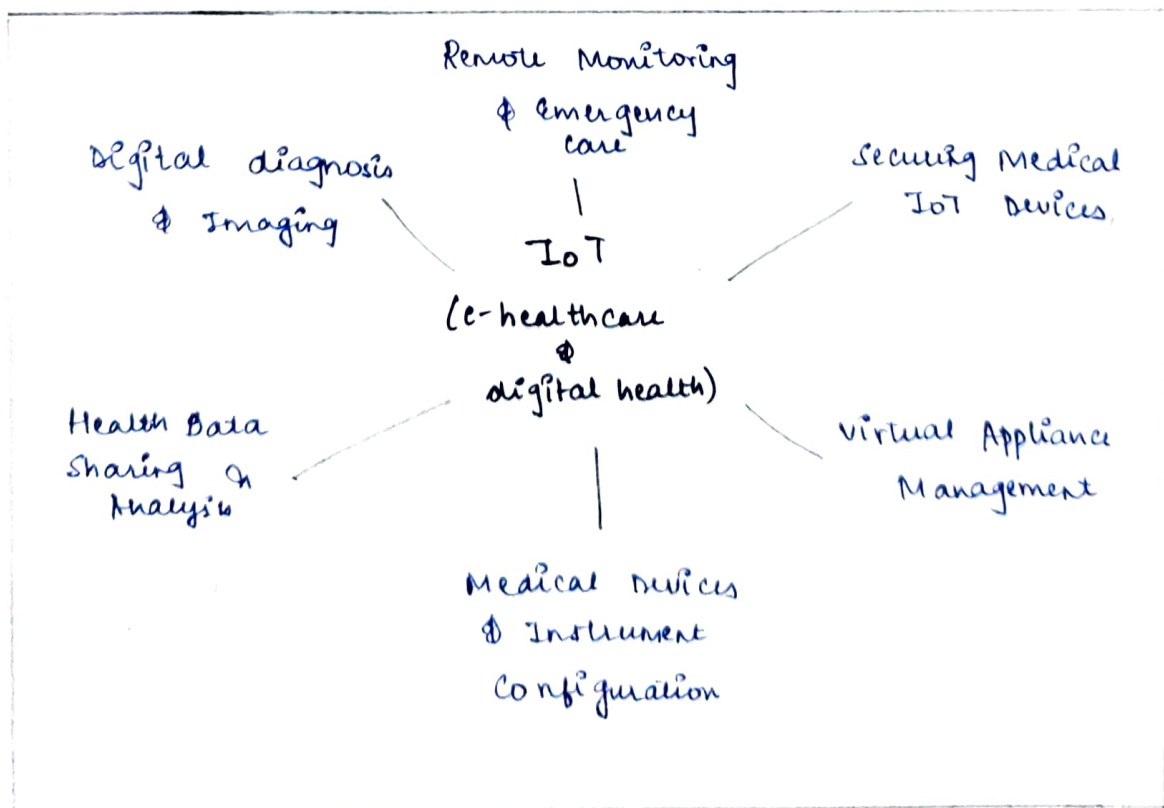 Remote Monitoring
& Emergency
care
Digital diagnosis
& Imaging
Securing Medical
IoT Devices
IoT
(e-healthcare
&
digital health)
Health Data
Sharing &
Analysis
Virtual Appliance
Management
Medical Devices
& Instrument
Configuration